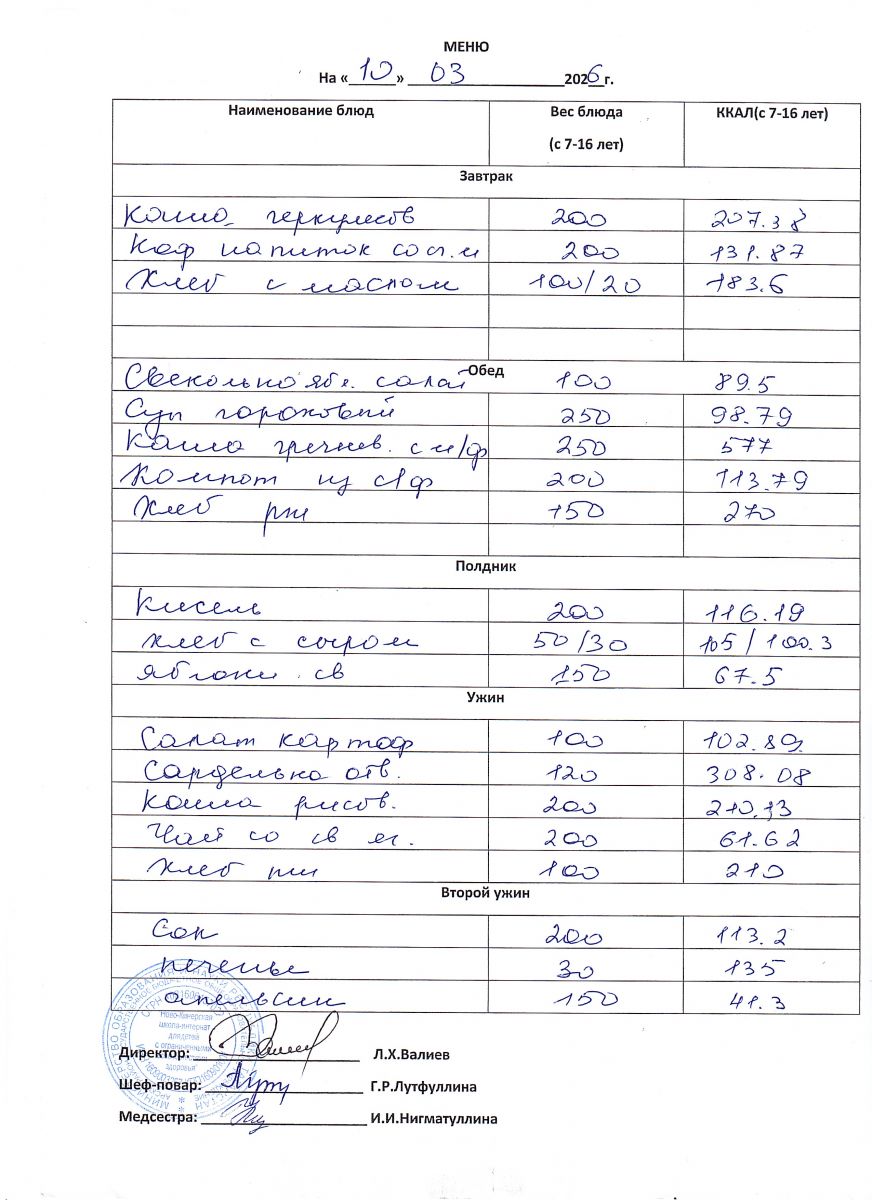 МЕНЮ
На «10» 03 2026 г.
Наименование блюд Вес блюда (с 7-16 лет) ККАЛ(с 7-16 лет)
Завтрак
Каша геркулесов 200 207.38
Коф напиток со сг.м 200 131.87
Хлеб с маслом 100/20 183.6
Обед
Свекольно ябл. салат 100 89.5
Суп гороховый 250 98.79
Каша гречнев. с м/ф 250 577
Компот из с/ф 200 113.79
Хлеб рж 150 270
Полдник
Кисель 200 116.19
хлеб с сыром 50/30 105/100.3
яблоки св 150 67.5
Ужин
Салат картоф 100 102.89
Сарделька отв. 120 308.08
Каша рисов. 200 210.13
Чай со 200 61.62
Хлеб пш 100 210
Второй ужин
Сок 200 113.2
печенье 30 135
апельсин 150 41.3
Ново-Кинерская
школа-интернат
для детей
с ограниченными
здоровья
Директор: Л.Х.Валиев
Шеф-повар: Г.Р.Лутфуллина
Медсестра: И.И.Нигматуллина